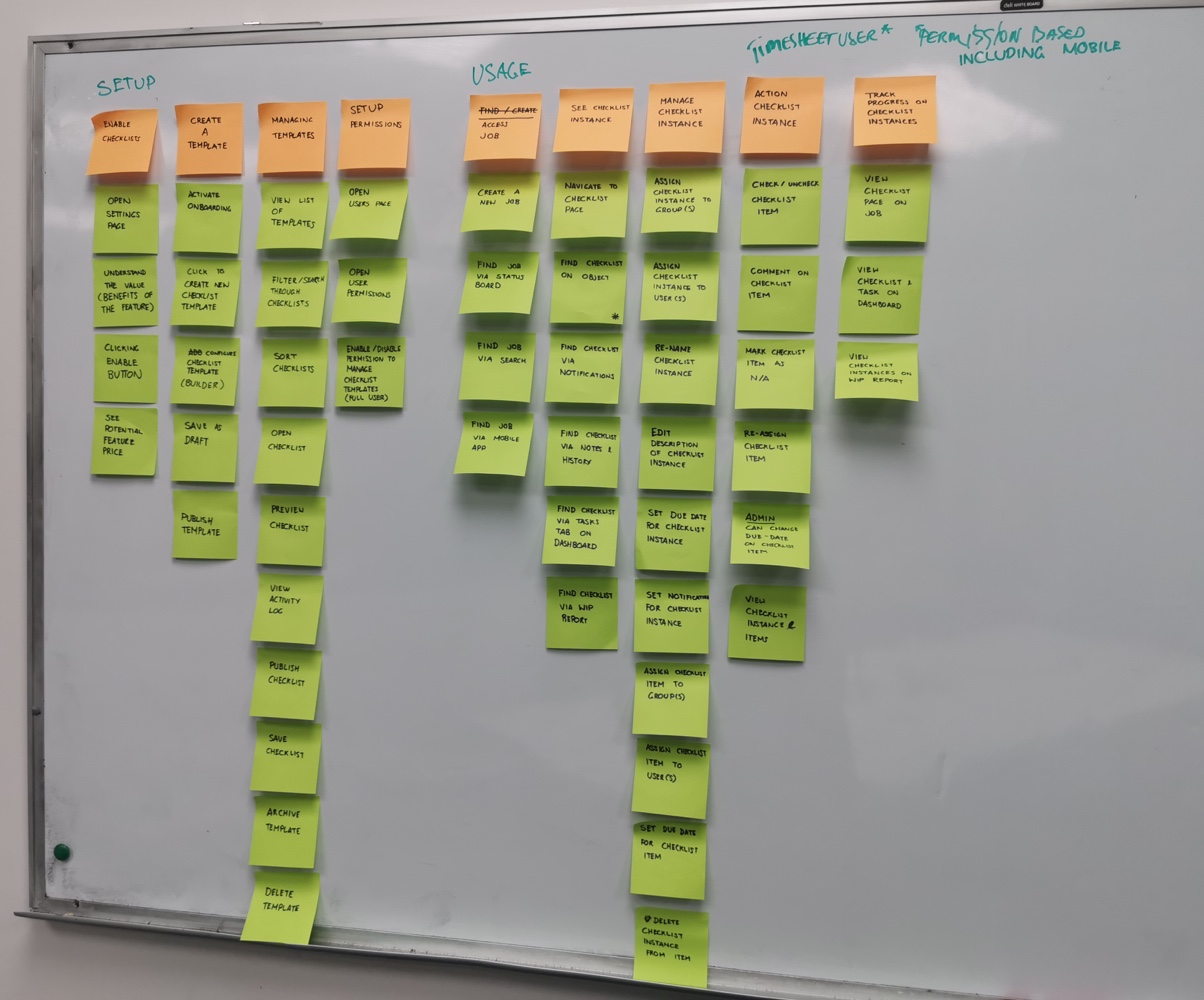 SETUP
ENABLE
CHECKLISTS
OPEN
SETTINGS
PAGE
UNDERSTAND
THE VALUE
(BENEFITS OF
THE FEATURE)
CLICKING
ENABLE
BUTTON
SEE
POTENTIAL
FEATURE
PRICE
CREATE
A
TEMPLATE
ACTIVATE
ONBOARDING
CLICK TO
CREATE NEW
CHECKLIST
TEMPLATE
ADD CONFIGURE
CHECKLIST
TEMPLATE
(BUILDER)
SAVE AS
DRAFT
PUBLISH
TEMPLATE
MANAGING
TEMPLATES
VIEW LIST
OF
TEMPLATES
FILTER/SEARCH
THROUGH
CHECKLISTS
SORT
CHECKLISTS
OPEN
CHECKLIST
PREVIEW
CHECKLIST
VIEW
ACTIVITY
LOG
PUBLISH
CHECKLIST
SAVE
CHECKLIST
ARCHIVE
TEMPLATE
DELETE
TEMPLATE
SETUP
PERMISSIONS
OPEN
USERS PAGE
OPEN
USER
PERMISSIONS
ENABLE/DISABLE
PERMISSION TO
MANAGE
CHECKLIST
TEMPLATES
(FULL USER)
USAGE
FIND / CREATE
ACCESS
JOB
CREATE A
NEW JOB
FIND JOB
VIA STATUS
BOARD
FIND JOB
VIA SEARCH
FIND JOB
VIA MOBILE
APP
SEE CHECKLIST
INSTANCE
NAVIGATE TO
CHECKLIST
PAGE
FIND CHECKLIST
ON OBJECT
*
FIND CHECKLIST
VIA
NOTIFICATIONS
FIND CHECKLIST
VIA NOTES &
HISTORY
FIND CHECKLIST
VIA TASKS
TAB ON
DASHBOARD
FIND CHECKLIST
VIA WIP
REPORT
MANAGE
CHECKLIST
INSTANCE
ASSIGN
CHECKLIST
INSTANCE TO
GROUP(S)
ASSIGN
CHECKLIST
INSTANCE TO
USER(S)
RE-NAME
CHECKLIST
INSTANCE
EDIT
DESCRIPTION
OF CHECKLIST
INSTANCE
SET DUE DATE
FOR CHECKLIST
INSTANCE
SET NOTIFICATION
FOR CHECKLIST
INSTANCE
ASSIGN CHECKLIST
ITEM TO
GROUP(S)
ASSIGN CHECKLIST
ITEM TO
USER(S)
SET DUE DATE
FOR CHECKLIST
ITEM
DELETE
CHECKLIST
INSTANCE
FROM ITEM
TIMESHEET USER*
ACTION
CHECKLIST
INSTANCE
CHECK/UNCHECK
CHECKLIST
ITEM
COMMENT ON
CHECKLIST
ITEM
MARK CHECKLIST
ITEM AS
N/A
RE-ASSIGN
CHECKLIST
ITEM
ADMIN
CAN CHANGE
DUE-DATE
ON CHECKLIST
ITEM
VIEW
CHECKLIST
INSTANCE &
ITEMS
*PERMISSION BASED
INCLUDING MOBILE
TRACK
PROGRESS ON
CHECKLIST
INSTANCES
VIEW
CHECKLIST
PAGE ON
JOB
VIEW
CHECKLIST &
TASK ON
DASHBOARD
VIEW
CHECKLIST
INSTANCES ON
WIP REPORT